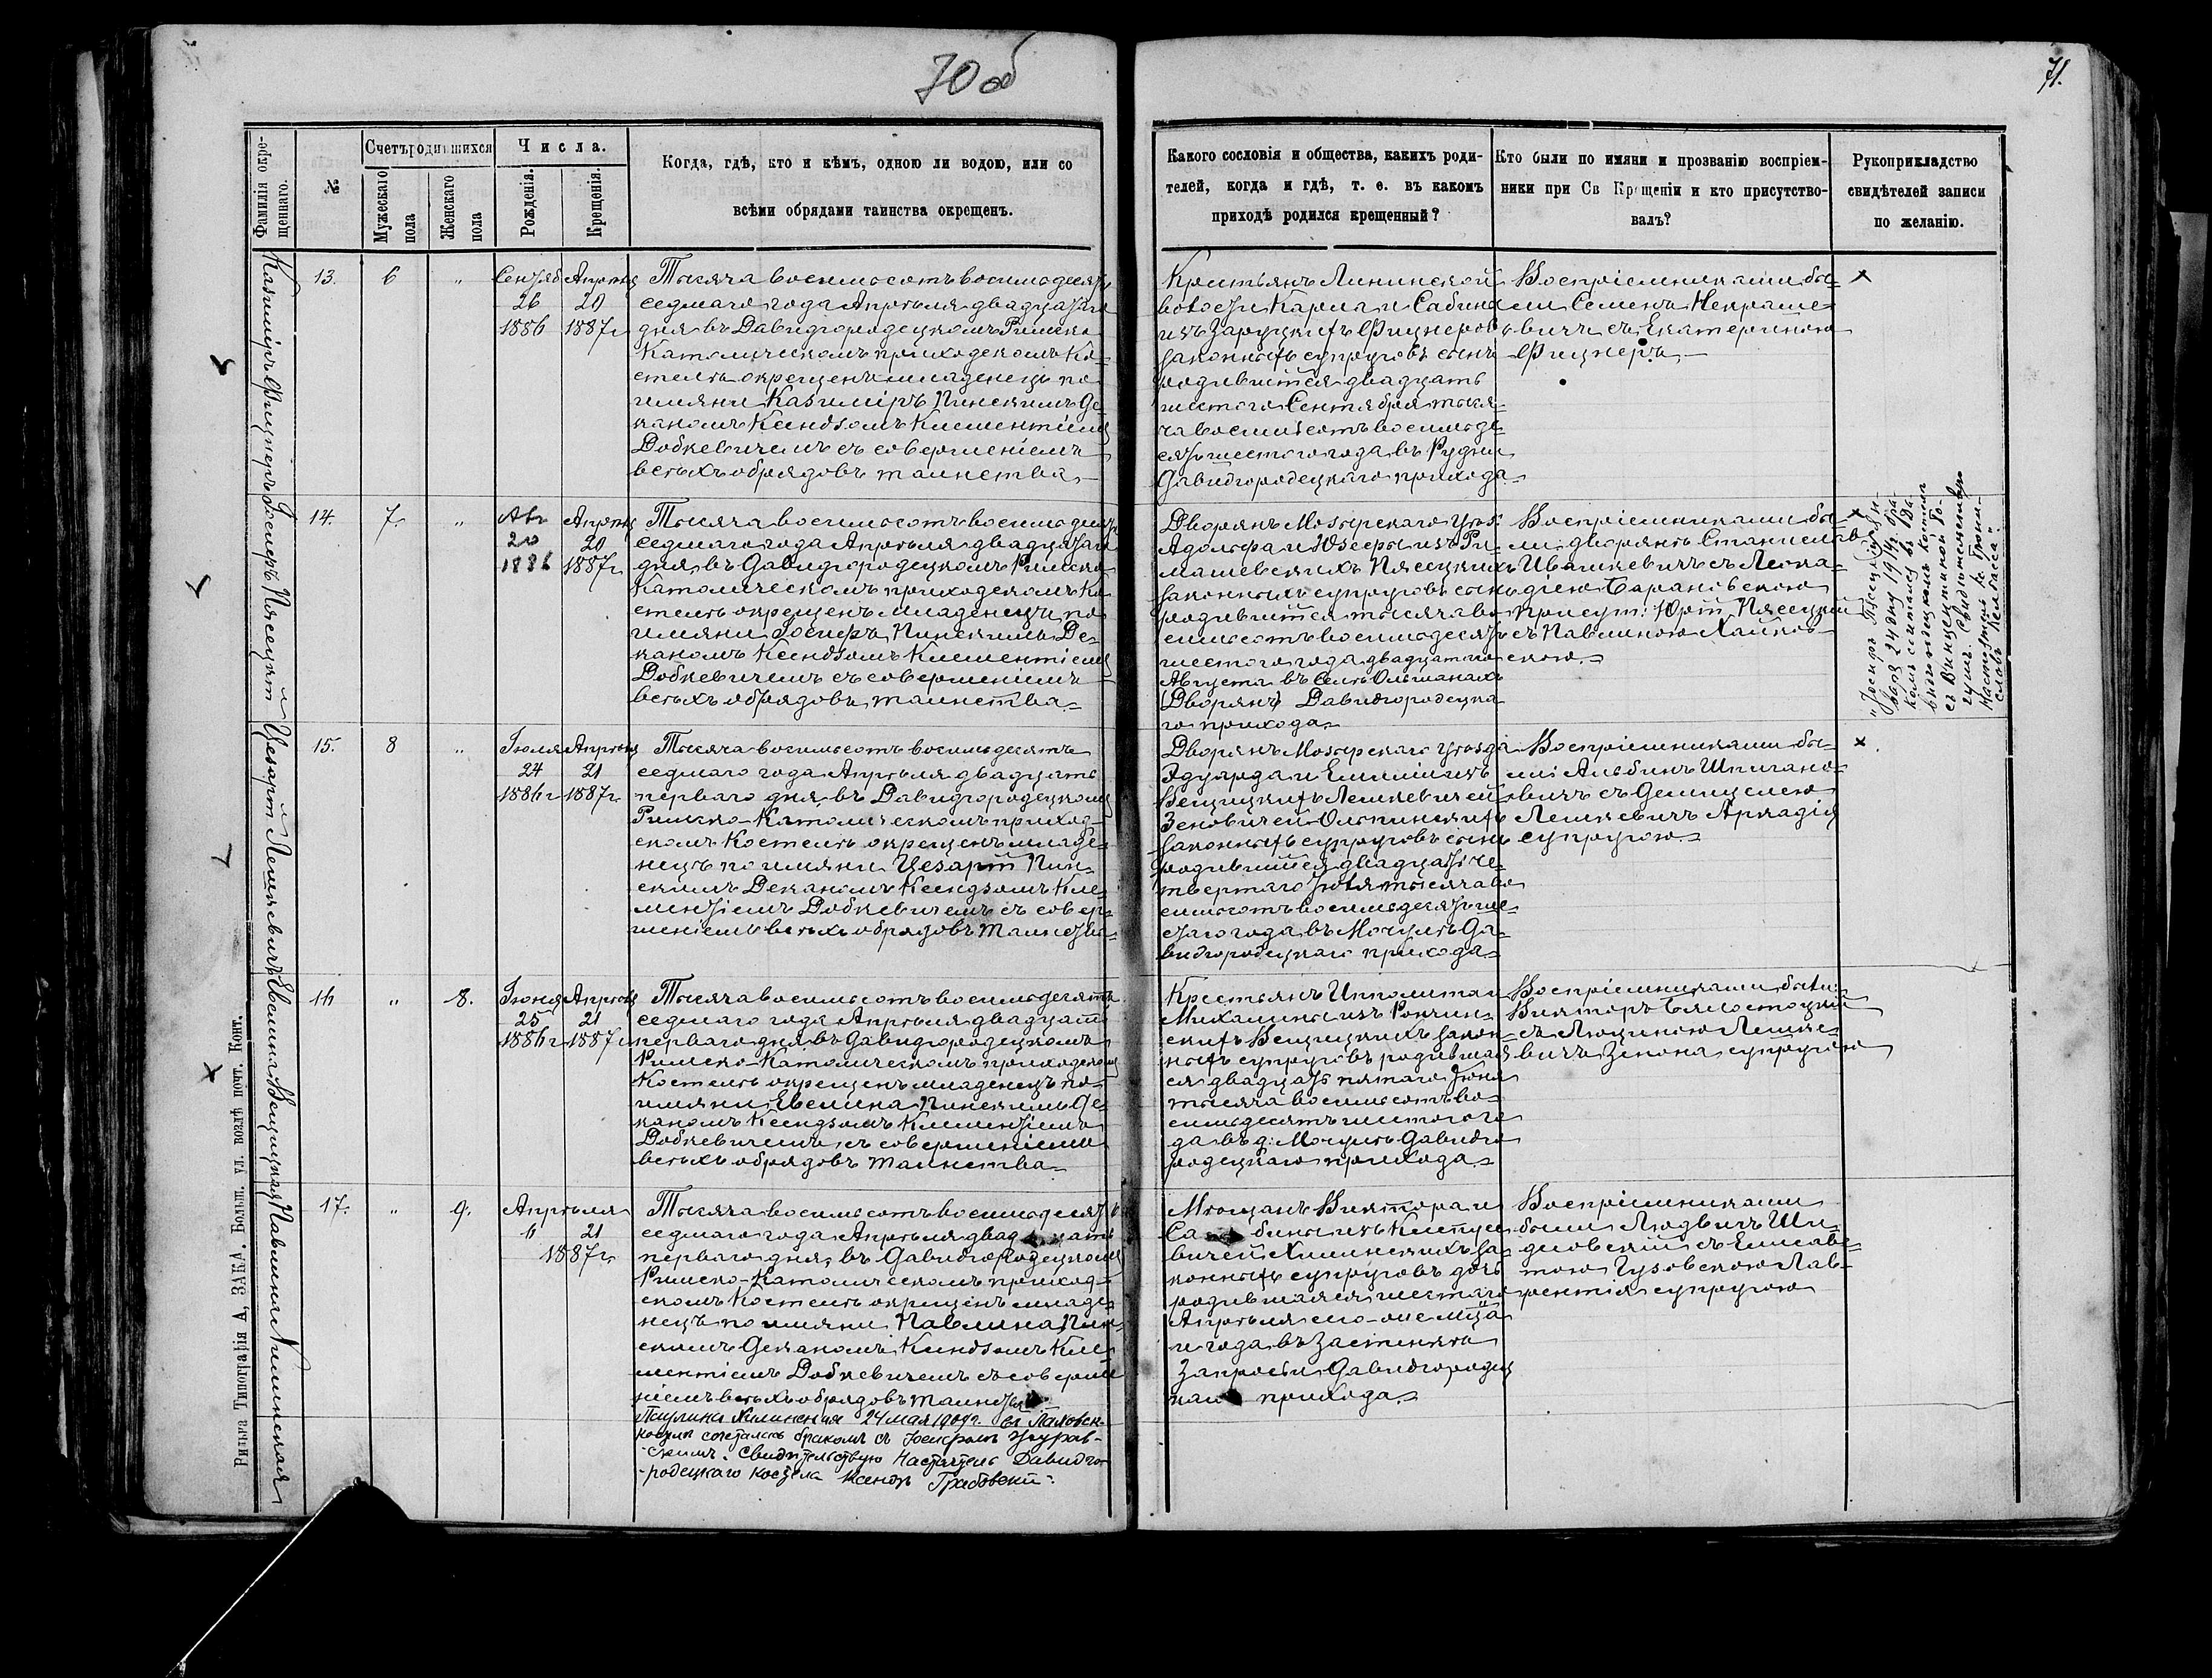 70 об
71.
Фамилія окре-
щеннаго.
№
Счетъ родившихся
Мужескаго
пола
Женскаго
пола
Числа.
Рожденія.
Крещенія.
Когда, гдѣ, кто и кѣмъ, одною ли водою, или со
всѣми обрядами таинства окрещенъ.
Какого сословія и общества, какихъ роди-
телей, когда и гдѣ, т. е. въ какомъ
приходѣ родился крещенный?
Кто были по имяни и прозванію воспріем-
ники при Св Крещеніи и кто присутство-
валъ?
Рукоприкладство
свидѣтелей записи
по желанію.
Казиміръ Фицнеръ
13.
6
"
Сентяб
26
1886
Апрѣля
20
1887 г
Тысяча восемьсотъ восемьдесятъ
седмаго года Апрѣля двадцатаго
дня въ Давидгородецкомъ Римско
Католическомъ приходскомъ Ко-
стелѣ окрещенъ младенецъ по
имяни Казиміръ Пинскимъ Де-
каномъ Ксендзомъ Клементіемъ
Добкевичемъ съ совершеніемъ
всѣхъ обрядовъ таинства.
Крестьянъ Ленинской
волости Карла и Сабины
изъ Заруцкихъ Фицнеровъ
законныхъ супруговъ сынъ
родившійся двадцать
шестого Сентября тыся-
ча восемьсотъ восемьде-
сятъ шестого года въ Рудни
Давидгородецкаго прихода
Воспріемниками бы-
ли Семенъ Некраше-
вичъ съ Екатериною
Фицнеръ.
х
Іосифъ Пясецкій
14.
7
"
Авг
20
1886
Апрѣля
20
1887 г
Тысяча восемьсотъ восемьдесятъ
седмаго года Апрѣля двадцатаго
дня, въ Давидгородецкомъ Римско
Католическомъ приходскомъ Ко-
стелѣ окрещенъ младенецъ по
имяни Іосифъ Пинскимъ Де-
каномъ Ксендзомъ Клементіемъ
Добкевичемъ съ совершеніемъ
всѣхъ обрядовъ таинства.
Дворянъ Мозырскаго уѣзд.
Адольфа и Юзефы изъ Ри-
машевскихъ Пясецкихъ
законныхъ супруговъ сынъ
родившійся тысяча во
семьсотъ восемьдесятъ
шестого года двадцатого
Августа въ селѣ Ольшанахъ
(Дворянъ) Давидгородецка-
го прихода
Воспріемниками бы-
ли: дворянъ Станиславъ
Ивашкевичъ съ Леока-
діею Барановскою
присут: Юрій Пясецкій
съ Павлиною Хайнов-
скою.
х
"Іосифъ Пясецкій
24 дня 1914 г. бра-
комъ въ Да-
видгородецкомъ костелѣ
съ Винцентиной
Свидѣтельствую
Настоятель
Келбаса"
Цезарій Лешкевичъ
15.
8
"
Іюля
24
1886 г
Апрѣля
21
1887 г.
Тысяча восемьсотъ восемьдесятъ
седмаго года Апрѣля двадцать
перваго дня, въ Давидгородецкомъ
Римско-Католическомъ приход-
скомъ Костелѣ окрещенъ младе-
нецъ по имяни Цезарій Пин-
скимъ Деканомъ Ксендзомъ Кле-
ментіемъ Добкевичемъ съ совер-
шеніемъ всѣхъ обрядовъ таинства
Дворянъ Мозырскаго уѣзда
Эдуарда и Емиліи изъ
Вещицкихъ Лешкевичей
Зеновичей-Ольпинскихъ
законныхъ супруговъ сынъ
родившійся двадцать че-
твертаго Іюля тысяча во
семьсотъ восемьдесятъ ше-
стаго года въ Мочулѣ Да-
видгородецкаго прихода
Воспріемниками бы-
ли Альбинъ Шпигано-
вичъ съ Домицелею
Лешкевичъ Аркадія
супругою.
х
Евелина Вещицкая
16
"
8.
Іюня
25
1886 г
Апрѣля
21
1887 г
Тысяча восемьсотъ восемьдесятъ
седмаго года Апрѣля двадцать
перваго дня въ Давидгородецкомъ
Римско-Католическомъ приходскомъ
Костелѣ окрещенъ младенецъ по
имяни Евелина Пинскимъ Де-
каномъ Ксендзомъ Клементіемъ
Добкевичемъ, съ совершеніемъ
всѣхъ обрядовъ таинства
Крестьянъ Ипполита и
Михалины изъ
скихъ Вещицкихъ закон-
ныхъ супруговъ родившая
ся двадцать пятаго Іюня
тысяча восемьсотъ во-
семьдесятъ шестого го-
да въ д: Мочулѣ Давидго
родецкаго прихода.
Воспріемниками были:
Викторъ Бялостоцкій
съ Люциною Лешке-
вичъ Зенона супругою
Павлина Хилинская
17.
"
9.
Апрѣля
6
21
1887 г.
Тысяча восемьсотъ восемьдесятъ
седмаго года Апрѣля двадцать
перваго дня, въ Давидгородецкомъ
Римско-Католическомъ приход-
скомъ Костелѣ окрещенъ младе-
нецъ по имяни Павлина Пин-
скимъ Деканомъ Ксендзомъ Кле-
ментіемъ Добкевичемъ съ соверше
ніемъ всѣхъ обрядовъ таинства
Паулина Хилинская 24 мая 1909 г. въ
костелѣ сочеталась бракомъ съ Іосифомъ Журав-
скимъ. Свидѣтельствую Настоятель Давидго-
родецкаго костела Ксендзъ Грабовскій.
Мѣщанъ Виктора и
Сабины изъ
вичей Хилинскихъ за-
конныхъ супруговъ дочь
родившаяся шестаго
Апрѣля сего-же мѣца
и года въ Застѣнкѣ
Запросье Давидгородец
каго прихода.
Воспріемниками
были Людвигъ Ши-
дловскій съ Елисаве-
тою Гузовскою Лав-
рентія супругою
Вильна Типографія А, ЗАКА. Больш. ул. возлѣ почт. Конт.